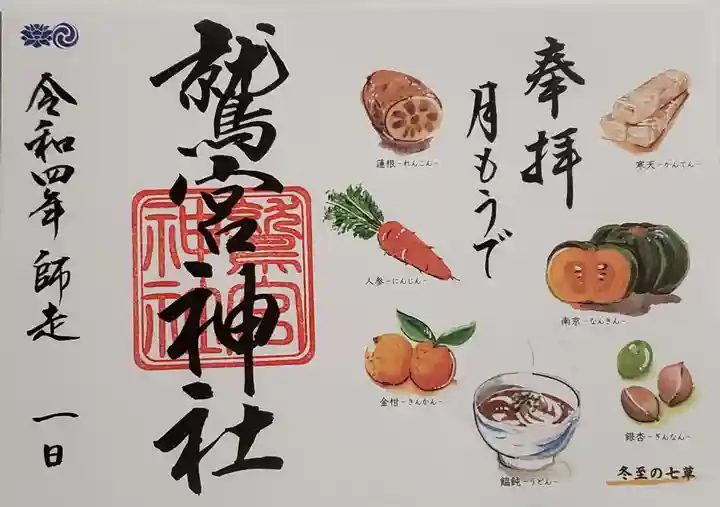 奉拝
月もうで
鷲宮神社
鷲宮
神社
令和四年 師走 一日
蓮根-れんこん-
寒天-かんてん-
人参-にんじん-
南京-なんきん-
金柑-きんかん-
銀杏-ぎんなん-
饂飩-うどん-
冬至の七草